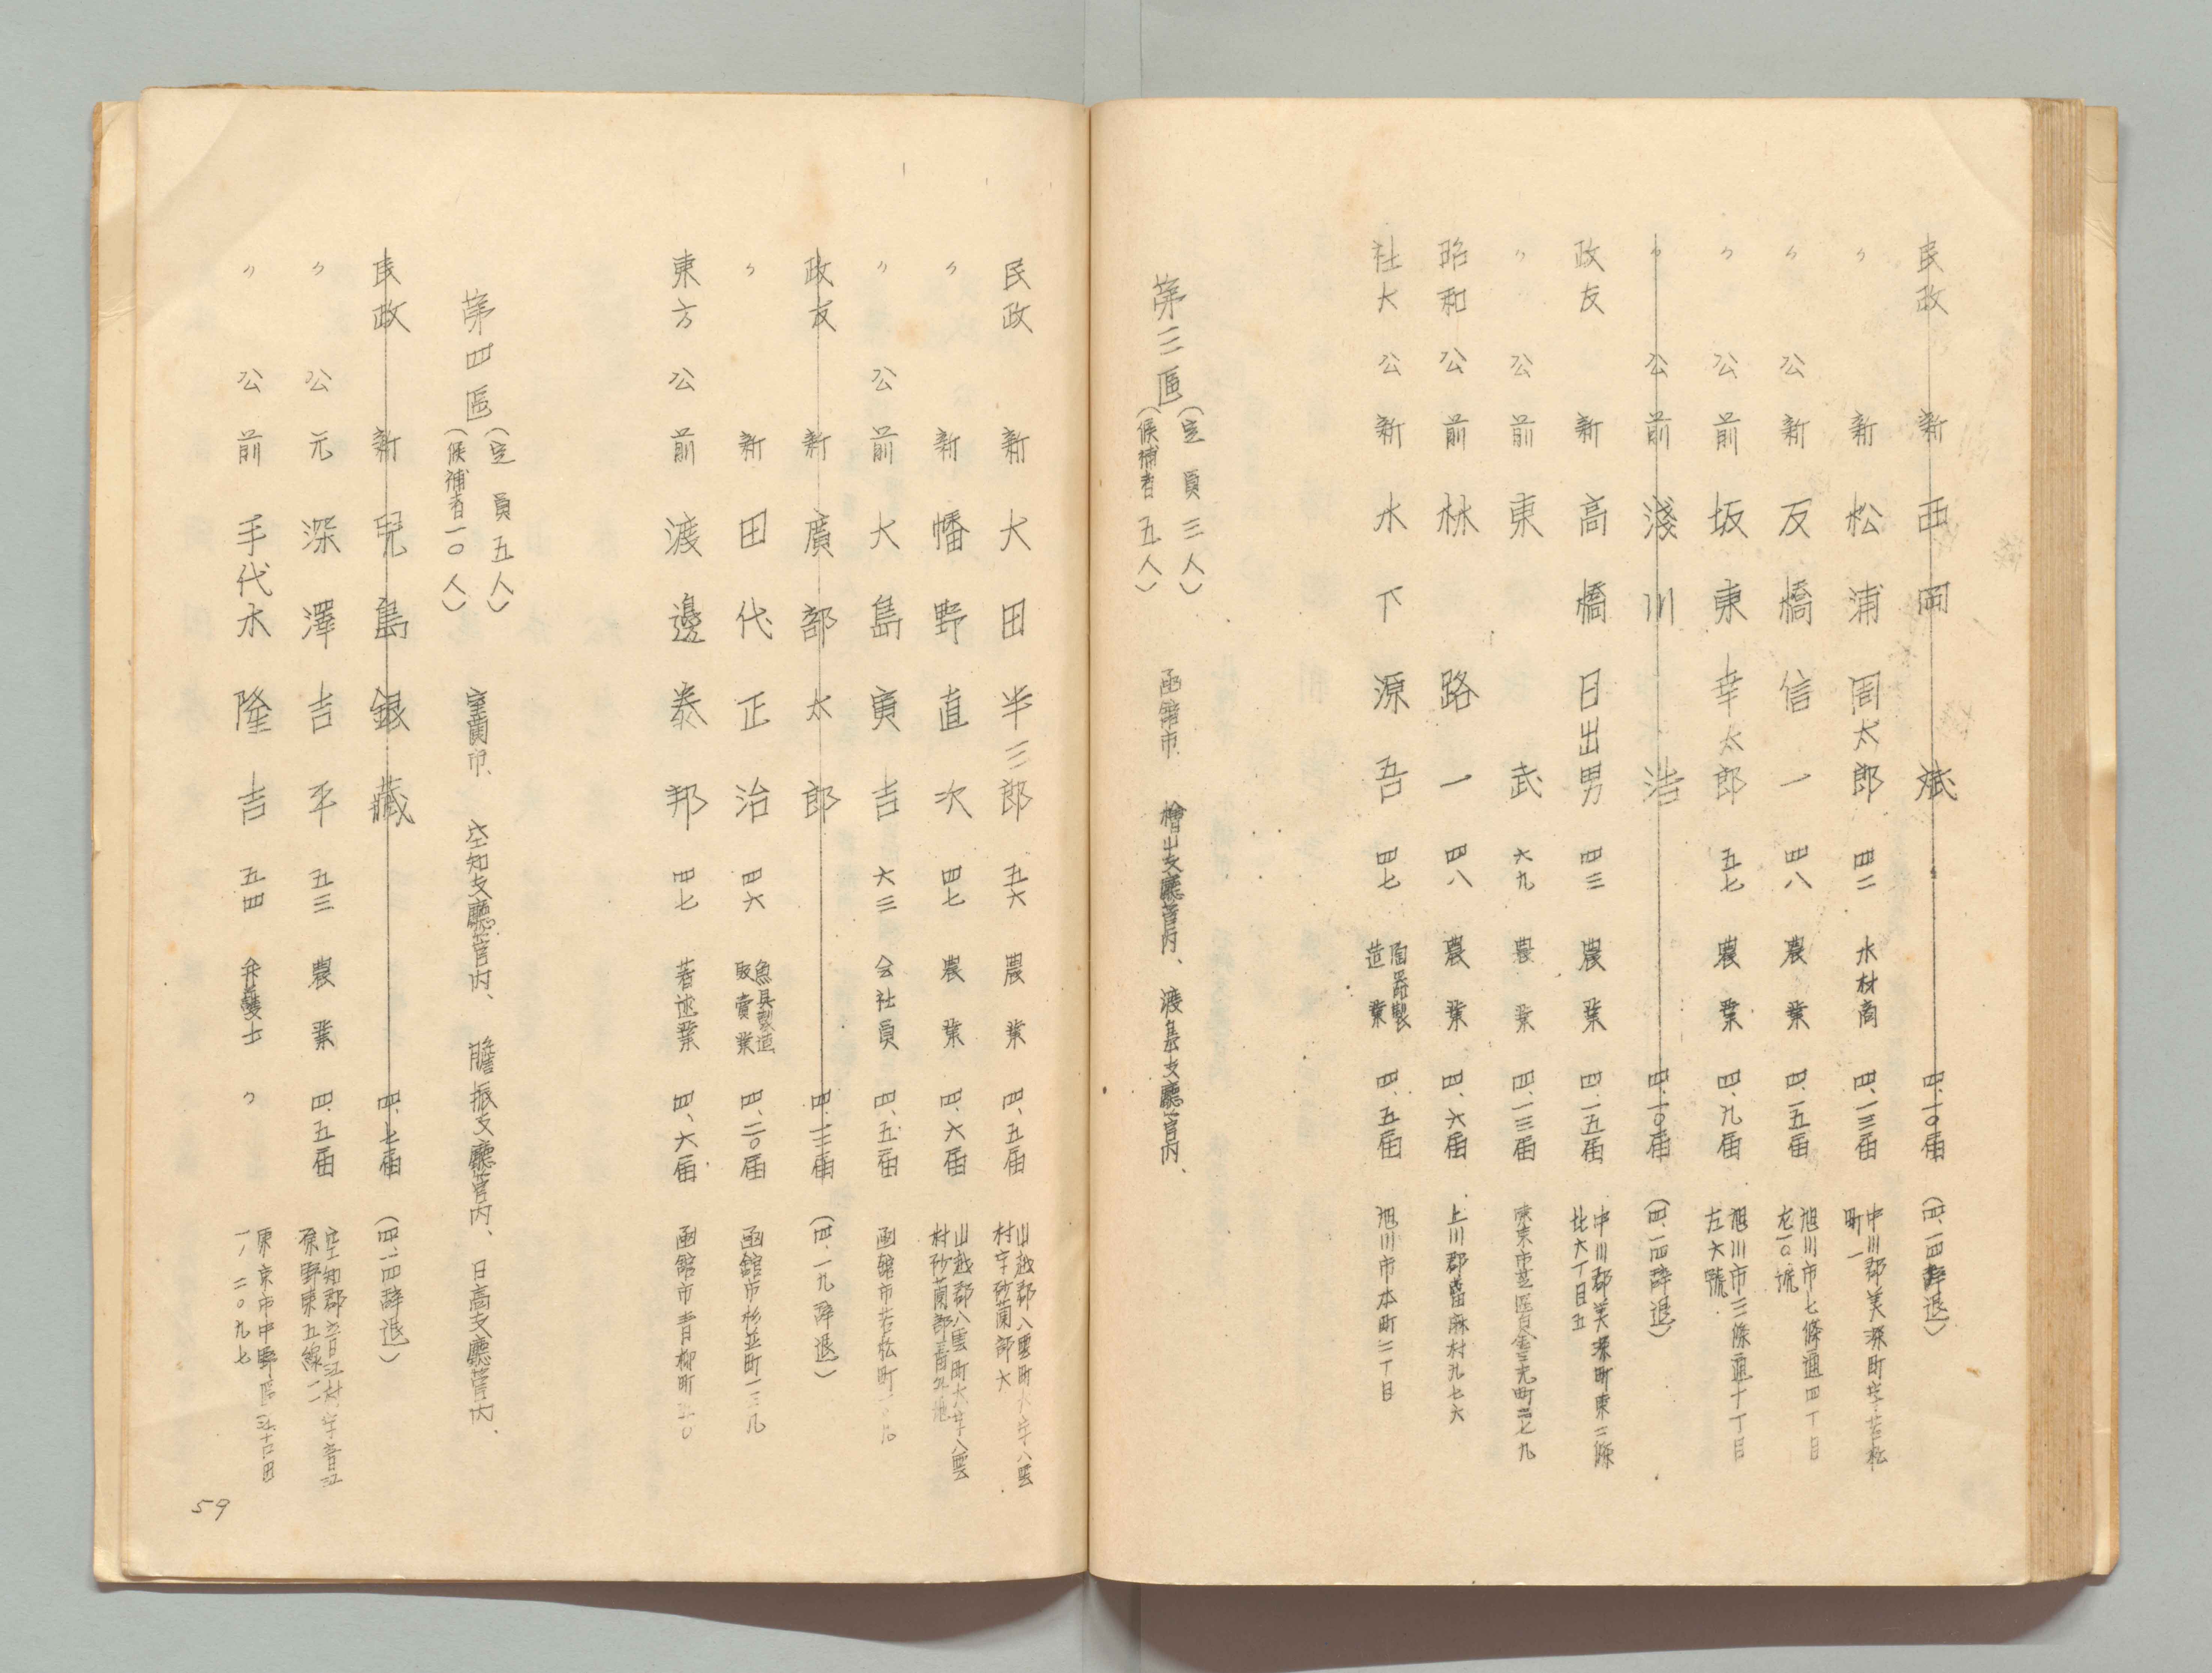 民政 新 西岡 斌 四、一〇届 (四、一四辞退)
〃 新 松浦周太郎 四二 木材商 四、一三届 中川郡美深町字若松町一
〃 公 新 友橋信一 四八 農業 四、一五届 旭川市七條通四丁目左一〇號
〃 公 前 坂東幸太郎 五七 農業 四、九届 旭川市三條通十丁目左六號
〃 公 前 淺川 浩 四、一〇届 (四、一四辞退)
政友 新 高橋日出男 四三 農業 四、一五届 中川郡美深町東二條北六丁目五
〃 公 前 東 武 六九 農業 四、一三届 東京市芝区白金三光町二七九
昭和 公 前 林 路一 四八 農業 四、六届 上川郡當麻村九七六
社大 公 新 木下源吾 四七 陶器製造業 四、五届 旭川市本町二丁目
第三區 (定員三人) (候補者五人) 函館市、檜山支廳管内、渡島支廳管内、
民政 新 大田半三郎 五六 農業 四、五届 山越郡八雲町大字八雲村字砂蘭部六
〃 新 幡野直次 四七 農業 四、六届 山越郡八雲町大字八雲村砂蘭部番外地
〃 公 前 大島寅吉 六三 会社員 四、五届 函館市若松町
政友 新 廣部太郎 四、一三届 (四、一九辞退)
〃 新 田代正治 四六 魚具製造販賣業 四、二〇届 函館市杉並町一三九
東方 公 前 渡邊泰邦 四七 著述業 四、六届 函館市青柳町五〇
第四區 (定員五人) (候補者一〇人) 室蘭市、空知支廳管内、膽振支廳管内、日高支廳管内、
民政 新 兒島銀藏 四、七届 (四、一四辞退)
〃 公 元 深澤吉平 五三 農業 四、五届 空知郡音江村字音江原野東五線二
〃 公 前 手代木隆吉 五四 弁護士 〃 東京市中野區江古田一ノ二〇九七
59